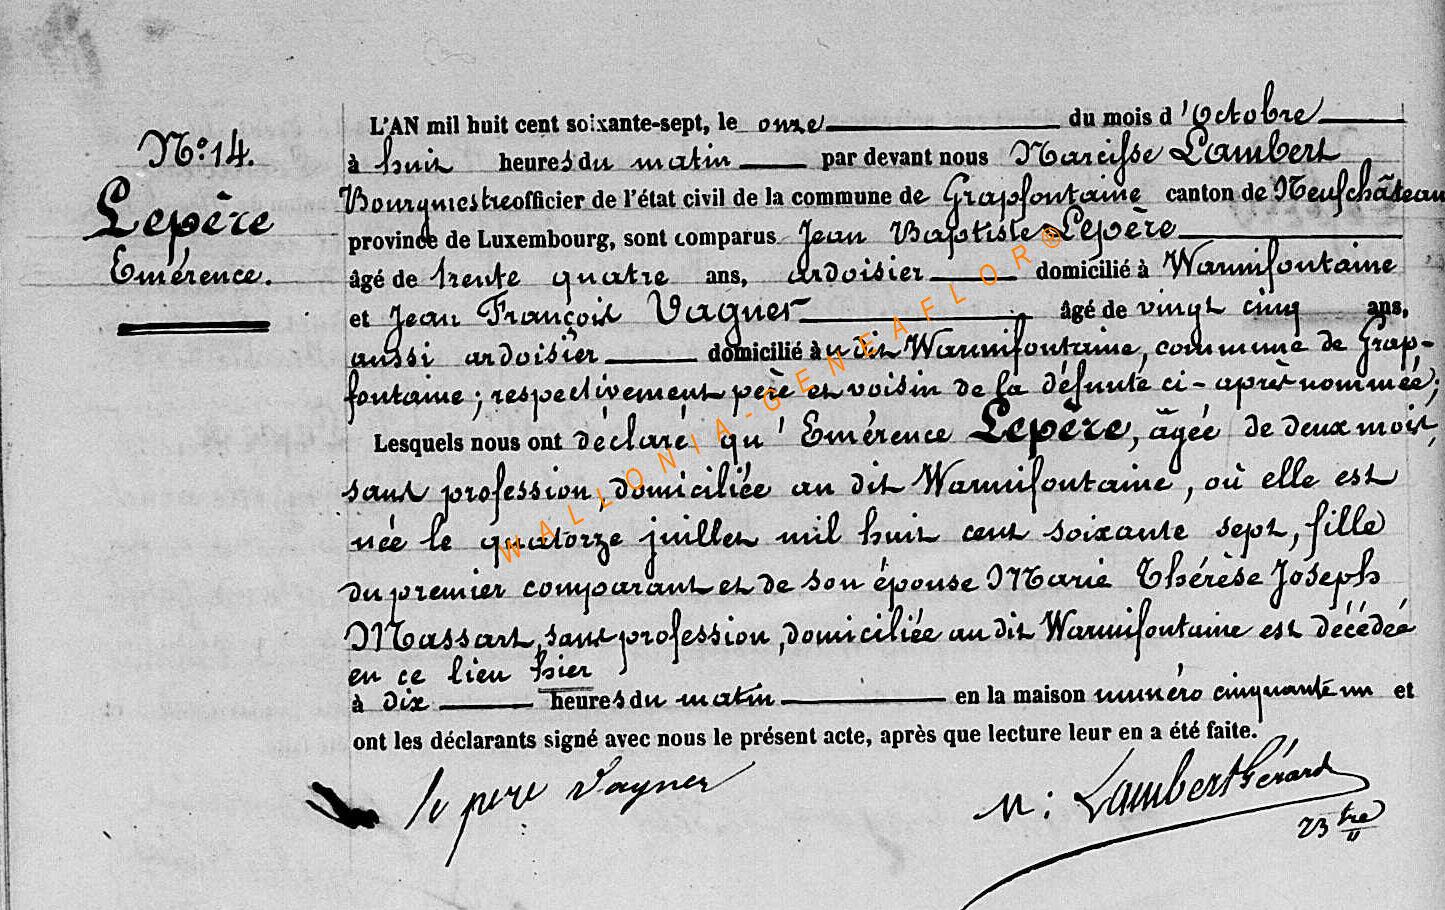 N° 14.
Lepère
Emérence.
L'AN mil huit cent soixante-sept, le onze du mois d'Octobre
à huit heures du matin par devant nous Narcisse Lambert
Bourgmestre officier de l'état civil de la commune de Grapfontaine canton de Neufchâteau
province de Luxembourg, sont comparus Jean Baptiste Lepère
âgé de trente quatre ans, ardoisier domicilié à Warmifontaine
et Jean François Vagner âgé de vingt cinq ans,
aussi ardoisier domicilié au dit Warmifontaine, commune de Grap-
fontaine; respectivement père et voisin de la défunte ci-après nommée;
Lesquels nous ont déclaré qu'Emérence Lepère, âgée de deux mois,
sans profession, domiciliée au dit Warmifontaine, où elle est
née le quatorze juillet mil huit cent soixante sept, fille
du premier comparant et de son épouse Marie Thérèse Joseph
Massart, sans profession, domiciliée au dit Warmifontaine est décédée
en ce lieu hier
à dix heures du matin en la maison numéro cinquante un et
ont les déclarants signé avec nous le présent acte, après que lecture leur en a été faite.
le pere Vagner N: Lambert Gérard
B tre
WALLONIA-GENEAFLOR®